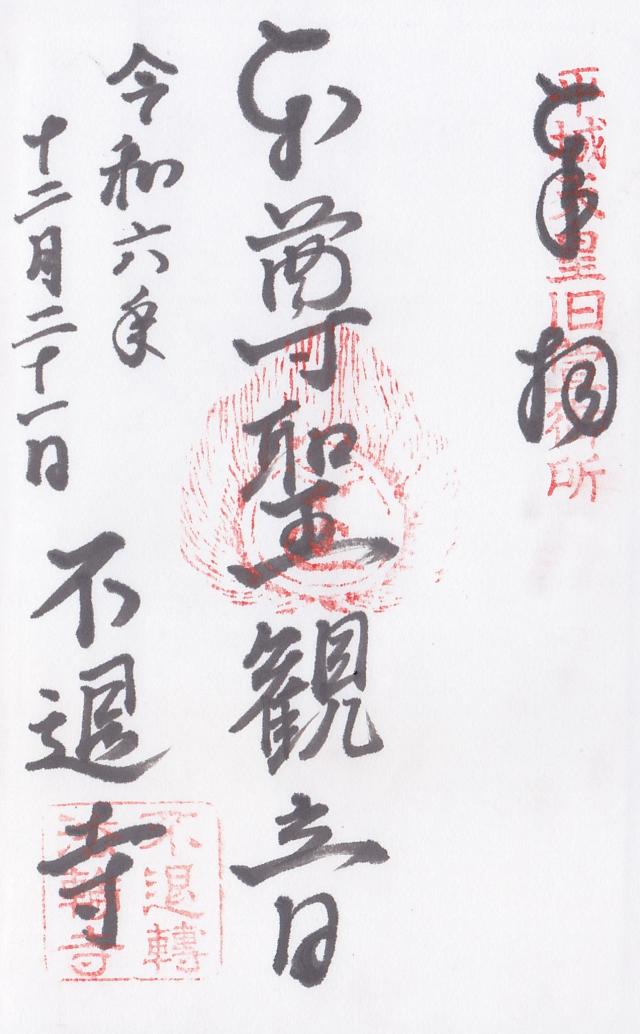 奉拝
平城天皇旧萱御所
本尊聖観音
令和六年
十二月二十一日
不退寺
不退轉
法輪寺